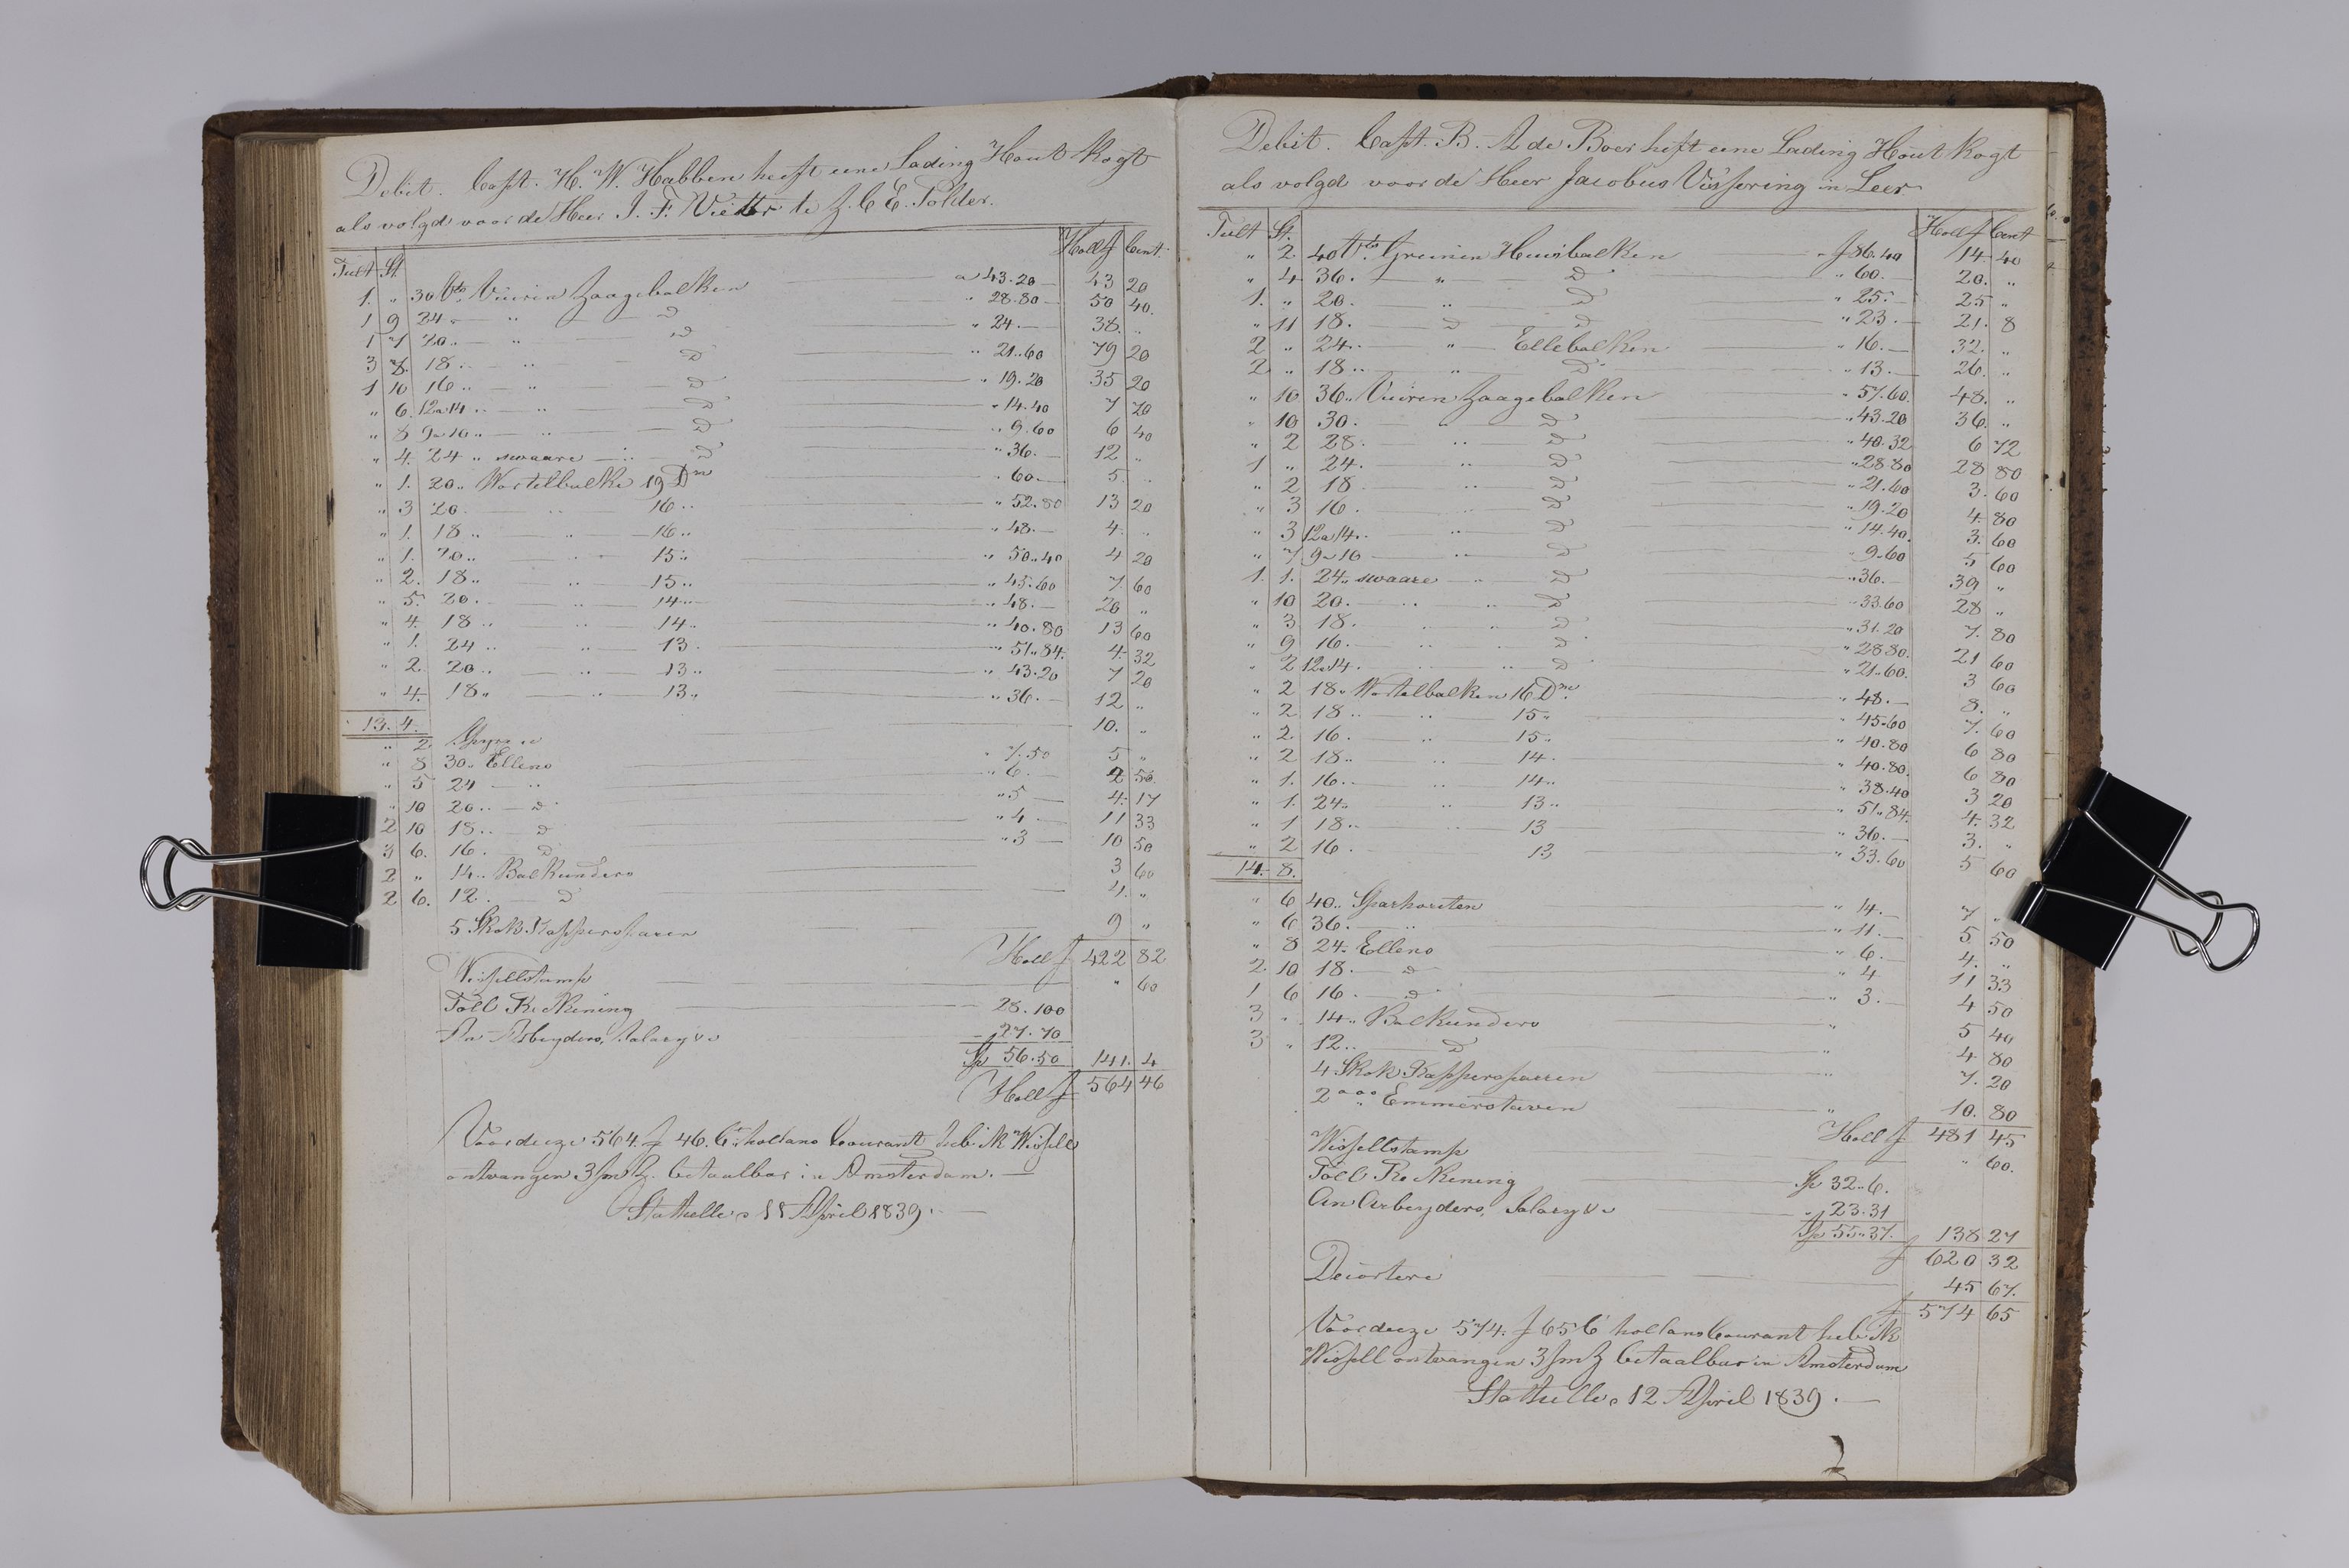 Debit. Capt. H. W. Habben heeft eene Lading Hout kogt
als volgd voor de Heer J. F. Vietor te J. C E. Polder.
Tult St. Hollf Cent.
1. " 30 Vts Vüüren Zaagebalken a 43.20 43 20
1 9 24 " " D " 28.80 50 40.
1 7 20 " " D " 24. 38. "
3 8. 18 " " D " 21.60 79 20
1 10 16 " " D " 19.20 35 20
" 6. 12 a 14 " " D " 14.40 7 20
" 8 9 a 10 " " D " 9.60 6 40
" 4. 24 " swaare " D " 36. 12 "
" 1. 20 " Wortelbalke 19 Dm " 60 5. "
" 3 20. " 16 " " 52.80 13 20
" 1. 18 " " 16 " " 48. 4. "
" 1. 20 " " 15 " " 50.40 4 20
" 2. 18 " " 15 " " 45.60 7. 60
" 5. 20. " 14 " " 48. 20 "
" 4. 18 " " 14 " " 40.80 13 60
" 1. 24 " " 13. " 51.84. 4. 32
" 2. 20 " " 13 " " 43.20 7 20
" 4. 18 " " 13 " " 36. 12 "
13. 4.
" 2. 10. "
" 8 30 " Ellens " 7.50 5 "
" 5 24 " " 6. 2 50.
" 10 20 " D " 5 4. 17
2 10 18 " D " 4 11 33
3 6. 16. D " 3 10 50
2 " 14 " Balkunders 3 60
2 6. 12. D 4. "
5 Skok Kappersparen 9 "
Hollf 422 82
Wissellstamp " 60
Toll Rekening 28.100
An Arbeyders, Salary &c 27.70
Sp 56.50 141. 4
Hollf 564 46
Voor deeze 564. f 46. Ct hollans Courant heb ik Wissell
ontvangen 3/m Z. betaalbar in Amsterdam.
Stathelle, 11 April 1839.
Debit. Capt. B. A de Boer heft eene Lading Hout kogt
als volgd voor de Heer Jacobus Visfering in Leer
Tult St. Hollf Cent
" 2 40 Vts Greinen Heüsbalken f 86.40 14. 40
" 4 36. " D " 60. 20. "
1. " 20. " D " 25. 25 "
" 11 18. D D " 23. 21. 8
2 " 24 " " Ellebalken " 16. 32. "
2 " 18 " " D " 13. 26. "
" 10. 36 " Vüüren Zaagebalken " 57.60. 48. "
" 10 30. " D " 43.20 36. "
" 2 28. " D " 40.32 6 72
1 " 24. " D " 28.80 28 80
" 2 18 " D " 21.60 3. 60
" 3 16. " D " 19.20 4. 80
" 3 12 a 14 " " D " 14.40. 3. 60
" 7 9 a 10 " D " 9.60 5 60
1. 1. 24 " swaare " D " 36. 39 "
" 10 20. " " D " 33.60 28 "
" 3 18. " " D " 31.20 7. 80
" 9 16. " " D " 28.80. 21 60
" 2 12 a 14. " " D " 21.60. 3 60
" 2 18 " Wortelbalken 16 Dm " 48. 8. "
" 2 18 " " 15 " " 45.60 7. 60
" 2 16. " 15 " " 40.80 6 80
" 2 18 " " 14. " 40.80. 6 80
" 1. 16. " 14 " " 38.40 3 20
" 1. 24 " " 13 " " 51.84. 4. 32
" 1 18 " " 13 " 36. 3. "
" 2 16. 13 " 33.60 5 60
14. 8.
" 6 40 " Sparhouten " 14. 7 "
" 6 36. " " 11. 5 50
" 8 24 " Ellens " 6. 4. "
2. 10 18. D " 4 11 33
1 6 16. D " 3. 4 50
3 " 14 " Balkunders " 5 40
3 " 12 " D " 4 80
4 Skok Kappersparren " 7. 20
2000 " Emmerstaven " 10. 80
Hollf 481 45
Wissellstamp " 60.
Toll Rekening Sp 32.6.
An Arbeyders, Salary &c " 23.31
Sp 55.37. 138 27
f 620 32
45 67.
f 574 65
Voor deeze 574. f 65 C hollans Courant heb ik
Wissell ontvangen 3/m Z betaalbar in Amsterdam
Stathelle, 12 April 1839.